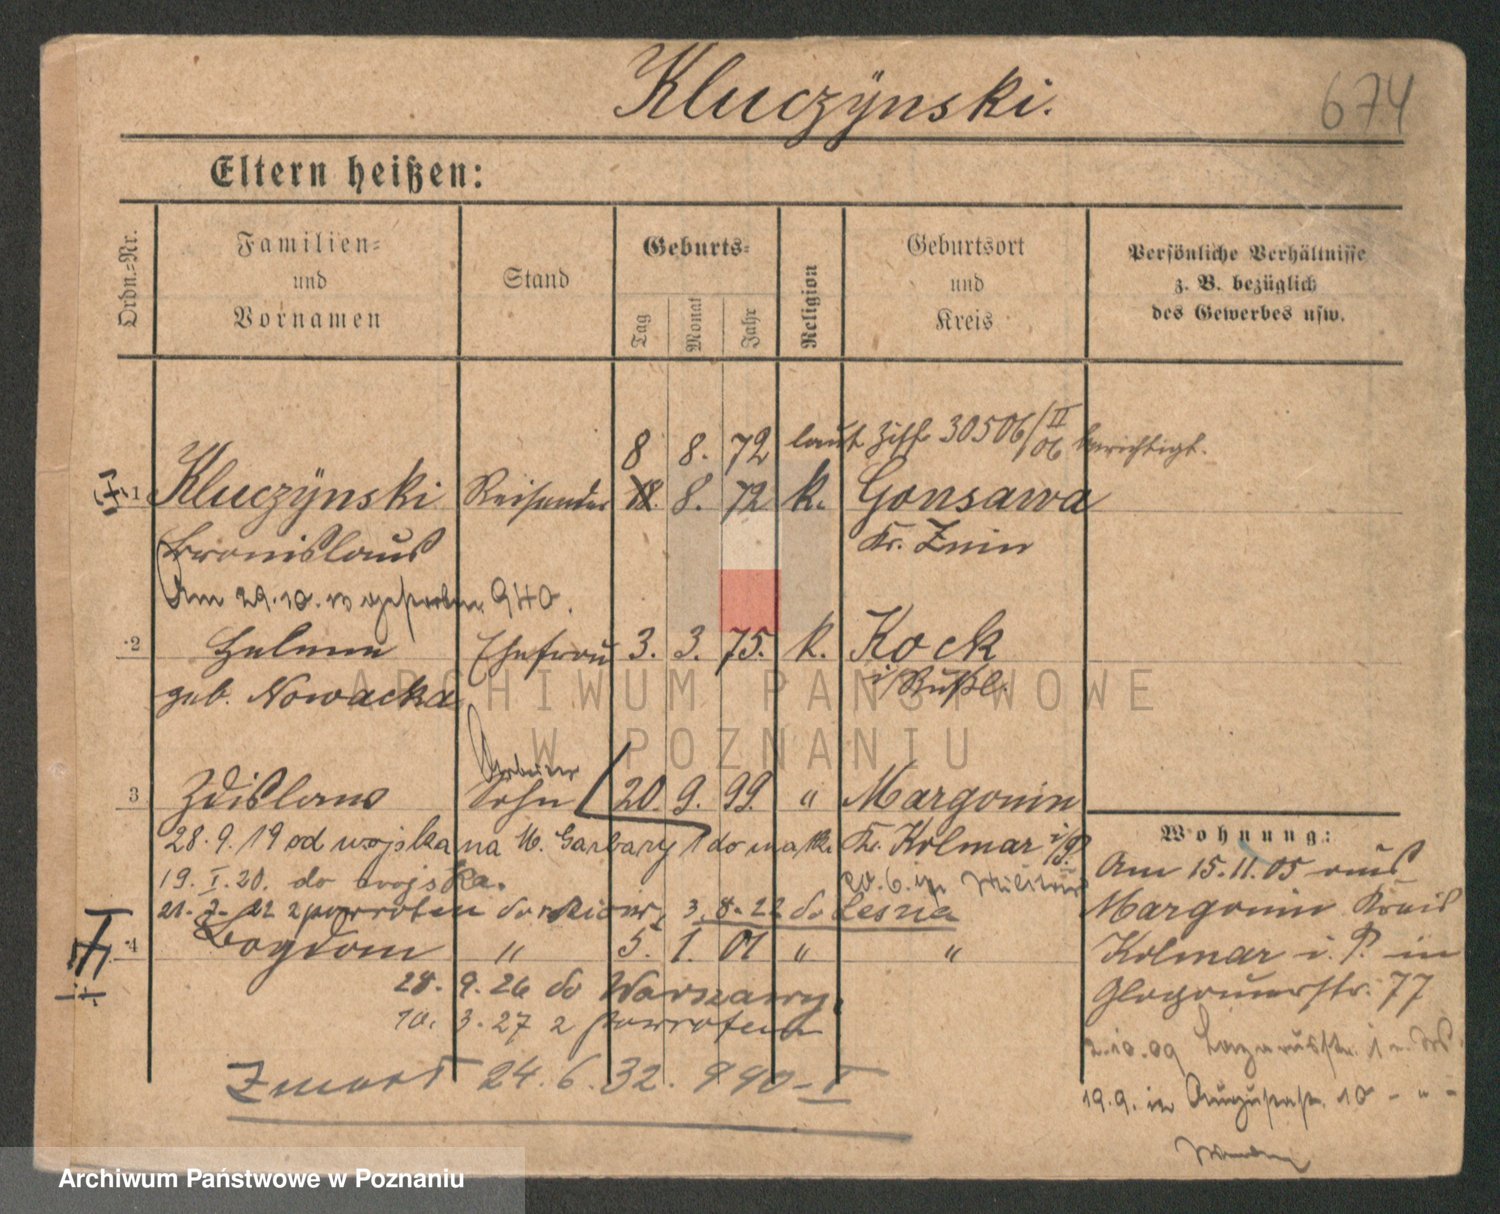 Kluczÿnski.
674
Eltern heißen:
Ordn.-Nr.
Familien-
und
Vornamen
Stand
Geburts-
Tag
Monat
Jahr
Religion
Geburtsort
und
Kreis
Persönliche Verhältnisse
z. B. bezüglich
des Gewerbes usw.
8 8. 72 laut Ziff 30506/II 06 berichtigt.
1 Kluczÿnski Reisender 18. 8. 72 k. Gonsawa
Bronislaus Kr. Znin
Am 29.10. gestorben 940.
2 Helene Ehefrau 3. 3. 75. k. Kock
geb. Nowacka i/Rußl.
Arbeiter
3 Zdislaus Sohn 20. 9. 99. " Margonin
28.9.19 od wojska na W. Garbary 1 do matk. Kr. Kolmar i/P.
19.I.20. do wojska.
21.7.22 z powrotem do 3.8-22 do Leszna
4 Bogdan " 5. 1. 01 " "
28. 9.26 do Warszawy.
10. 3.27 z powrotem
Zmarł 24.6.32. 990-I
Wohnung:
Am 15.11.05 aus
Margonin Kreis
Kolmar i. P. in
Glogauerstr. 77
2.10.09 Lazarusstr. 1
19.9. in Augustastr. 10 - " -
ARCHIWUM PAŃSTWOWE
W POZNANIU
Archiwum Państwowe w Poznaniu